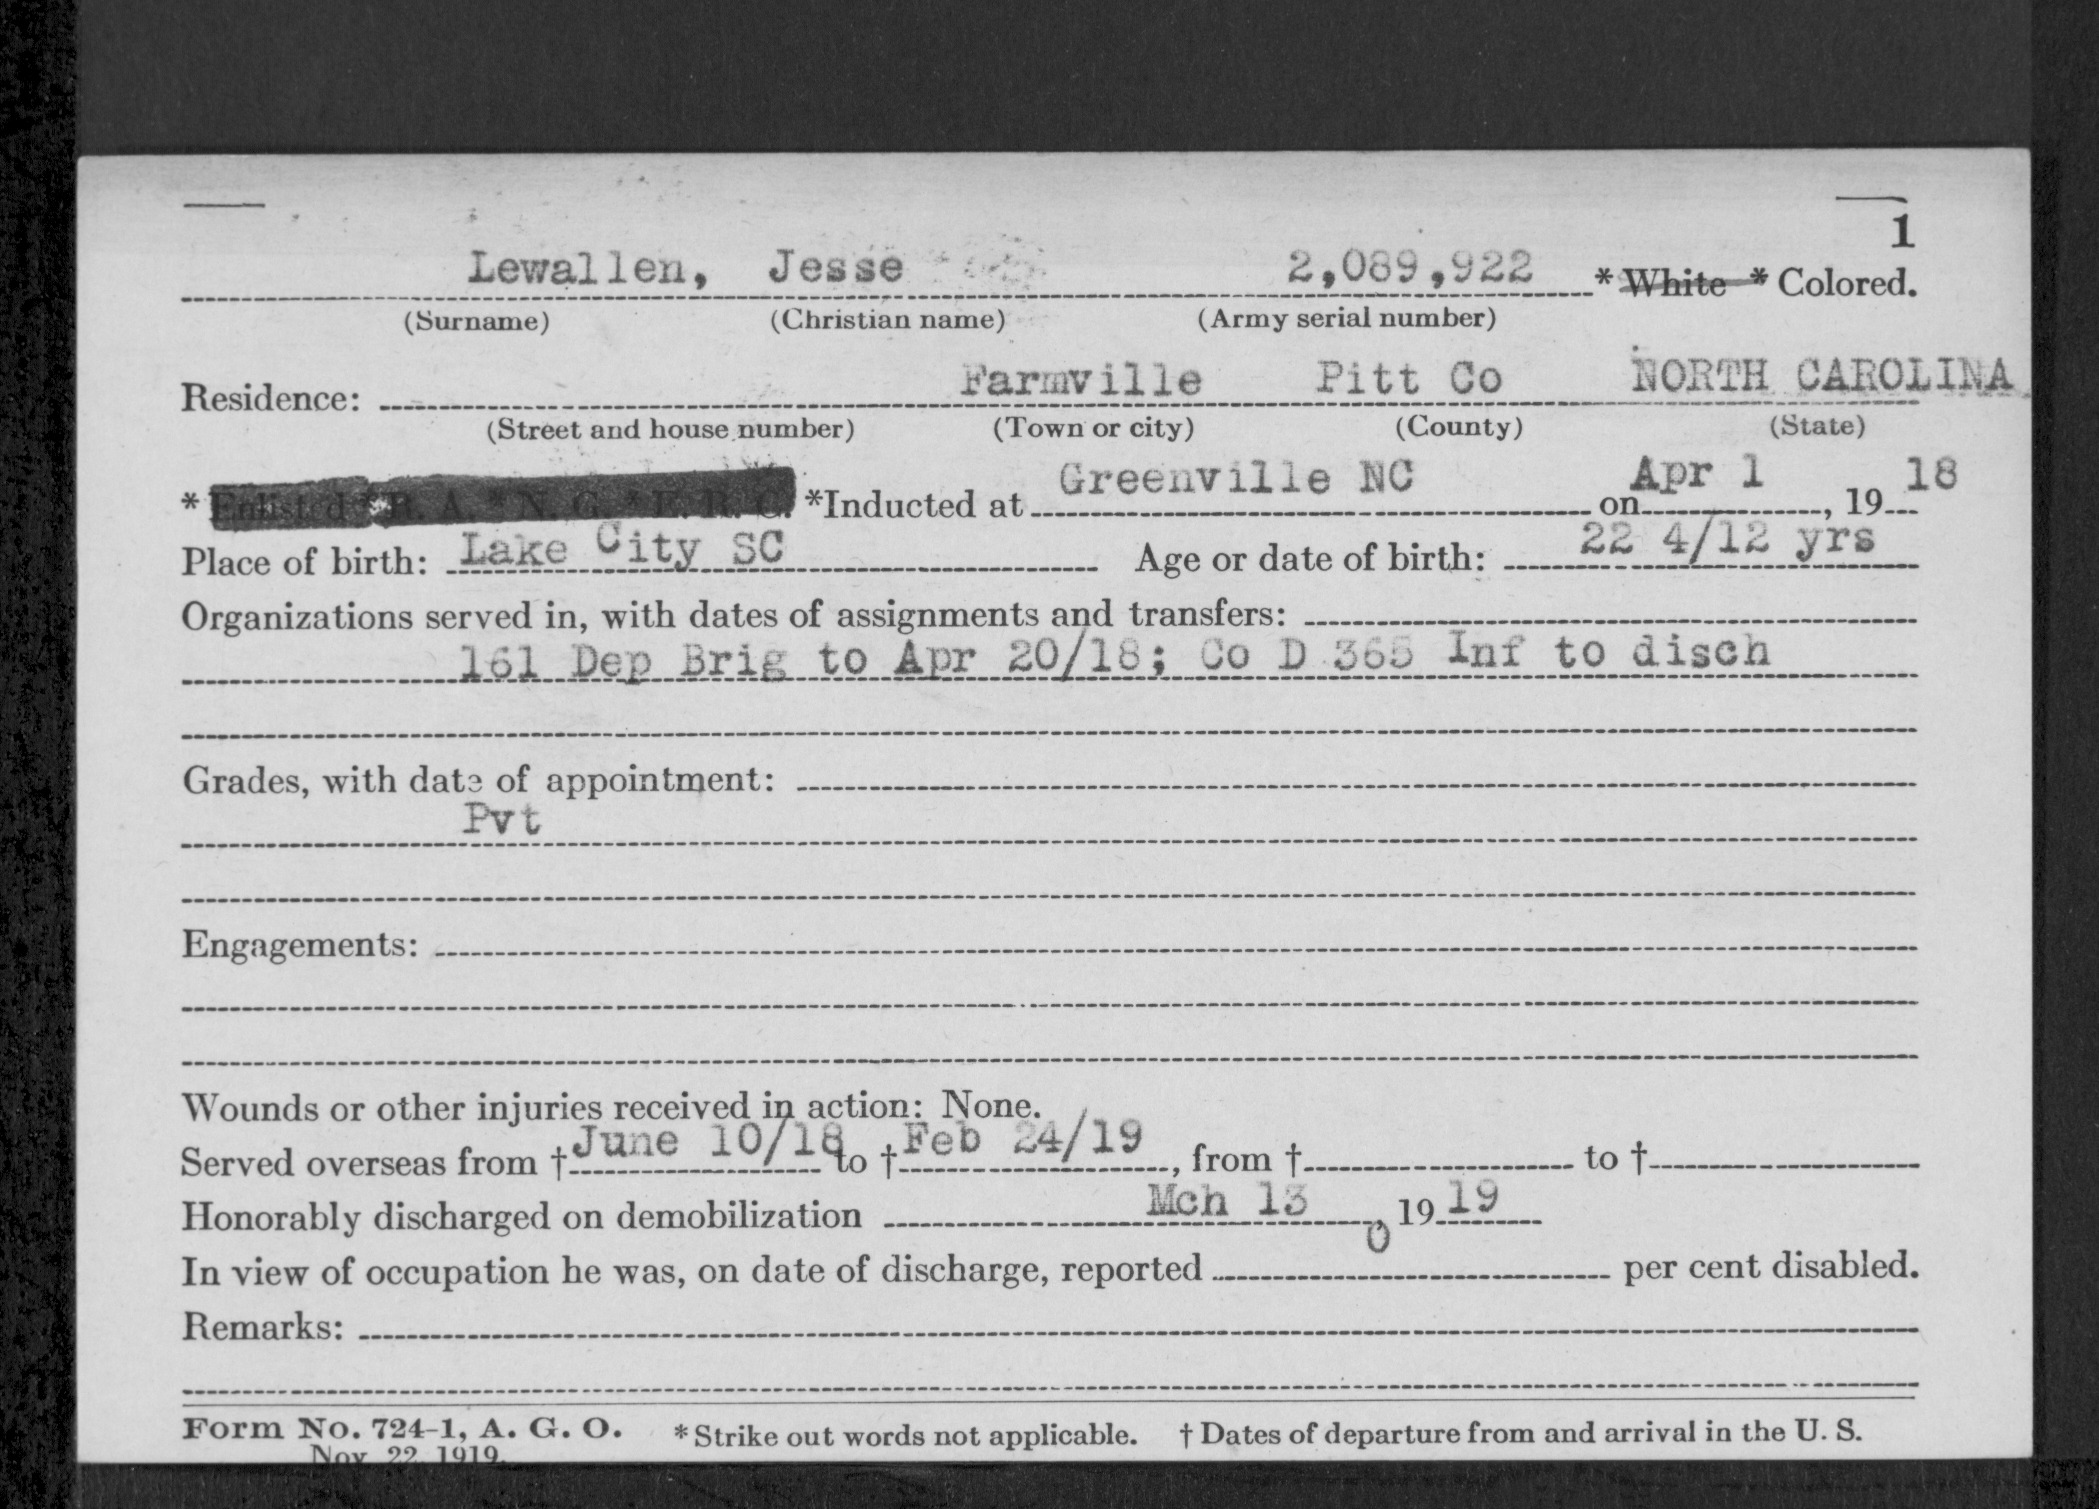 1
Lewallen, Jesse 2,089,922 * White * Colored.
(Surname) (Christian name) (Army serial number)
Residence: Farmville Pitt Co NORTH CAROLINA
(Street and house number) (Town or city) (County) (State)
* Enlisted * R. A. * N. G. * E. R. C. *Inducted at Greenville NC on Apr 1, 19 18
Place of birth: Lake City SC Age or date of birth: 22 4/12 yrs
Organizations served in, with dates of assignments and transfers:
161 Dep Brig to Apr 20/18; Co D 365 Inf to disch
Grades, with date of appointment:
Pvt
Engagements:
Wounds or other injuries received in action: None.
Served overseas from † June 10/18 to † Feb 24/19, from † to †
Honorably discharged on demobilization Mch 13, 19 19
In view of occupation he was, on date of discharge, reported 0 per cent disabled.
Remarks:
Form No. 724-1, A. G. O. * Strike out words not applicable. † Dates of departure from and arrival in the U. S.
Nov. 22, 1919.